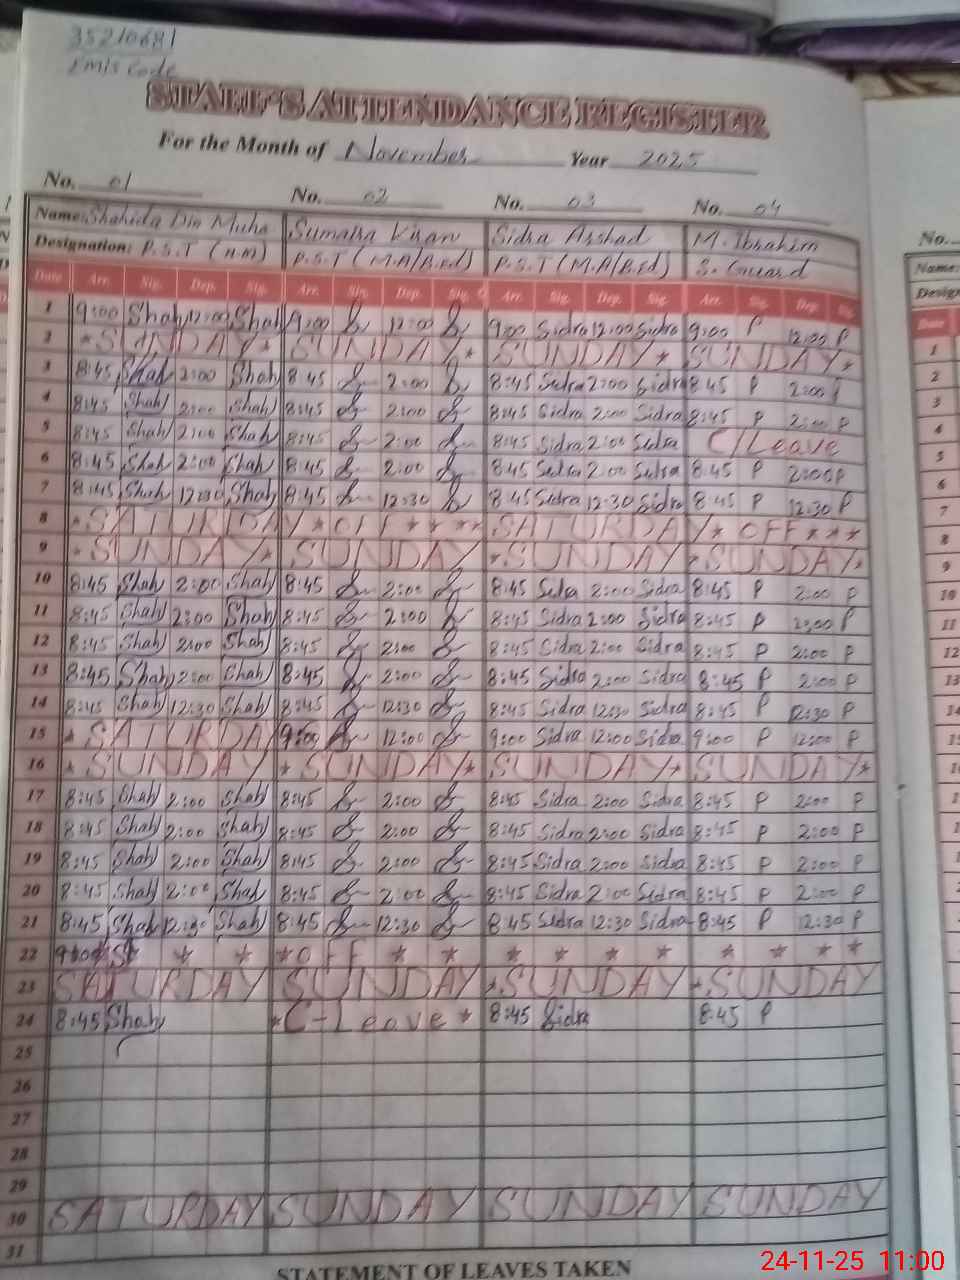 35210681
Emis Code
STAFF'S ATTENDANCE REGISTER
For the Month of November Year 2025
No. 01 No. 02 No. 03 No. 04
Name: Shahida Din Muha Sumaira Kiran Sidra Arshad M. Ibrahim
Designation: P.S.T (n.m) P.S.T (M.A/B.Ed) P.S.T (M.A/B.Ed) S. Guard
Date Arr. Sig. Dep. Sig. Arr. Sig. Dep. Sig. Arr. Sig. Dep. Sig. Arr. Sig. Dep. Sig.
1 9:00 Shah 12:00 Shah 9:00 12:00 9:00 Sidra 12:00 Sidra 9:00 P 12:00 P
2 *SUNDAY* SUNDAY* SUNDAY* SUNDAY*
3 8:45 Shah 2:00 Shah 8:45 2:00 8:45 Sidra 2:00 Sidra 8:45 P 2:00 P
4 8:45 Shah 2:00 Shah 8:45 2:00 8:45 Sidra 2:00 Sidra 8:45 P 2:00 P
5 8:45 Shah 2:00 Shah 8:45 2:00 8:45 Sidra 2:00 Sidra C/Leave
6 8:45 Shah 2:00 Shah 8:45 2:00 8:45 Sidra 2:00 Sidra 8:45 P 2:00 P
7 8:45 Shah 12:30 Shah 8:45 12:30 8:45 Sidra 12:30 Sidra 8:45 P 12:30 P
8 *SATURDAY*OFF**** SATURDAY* OFF***
9 *SUNDAY* SUNDAY *SUNDAY *SUNDAY*
10 8:45 Shah 2:00 Shah 8:45 2:00 8:45 Sidra 2:00 Sidra 8:45 P 2:00 P
11 8:45 Shah 2:00 Shah 8:45 2:00 8:45 Sidra 2:00 Sidra 8:45 P 2:00 P
12 8:45 Shah 2:00 Shah 8:45 2:00 8:45 Sidra 2:00 Sidra 8:45 P 2:00 P
13 8:45 Shah 2:00 Shah 8:45 2:00 8:45 Sidra 2:00 Sidra 8:45 P 2:00 P
14 8:45 Shah 12:30 Shah 8:45 12:30 8:45 Sidra 12:30 Sidra 8:45 P 12:30 P
15 * SATURDAY 9:00 12:00 9:00 Sidra 12:00 Sidra 9:00 P 12:00 P
16 * SUNDAY * SUNDAY* SUNDAY* SUNDAY*
17 8:45 Shah 2:00 Shah 8:45 2:00 8:45 Sidra 2:00 Sidra 8:45 P 2:00 P
18 8:45 Shah 2:00 Shah 8:45 2:00 8:45 Sidra 2:00 Sidra 8:45 P 2:00 P
19 8:45 Shah 2:00 Shah 8:45 2:00 8:45 Sidra 2:00 Sidra 8:45 P 2:00 P
20 8:45 Shah 2:00 Shah 8:45 2:00 8:45 Sidra 2:00 Sidra 8:45 P 2:00 P
21 8:45 Shah 12:30 Shah 8:45 12:30 8:45 Sidra 12:30 Sidra 8:45 P 12:30 P
22 9:00 * * *OFF * * * * * * * * * *
23 SATURDAY SUNDAY *SUNDAY *SUNDAY
24 8:45 Shah *C-Leave * 8:45 Sidra 8:45 P
25
26
27
28
29
30 SATURDAY SUNDAY SUNDAY SUNDAY
31
STATEMENT OF LEAVES TAKEN
No.
Name:
Date
1
2
3
4
5
6
7
8
9
10
11
12
13
24-11-25 11:00